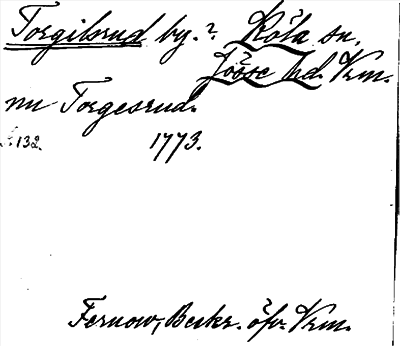 Torgilsrud by.? Köla sn.
Jösse hd. Vrm.
nu Torgesrud.
s. 132. 1773.
Fernow, Beskr. öfv. Vrm.